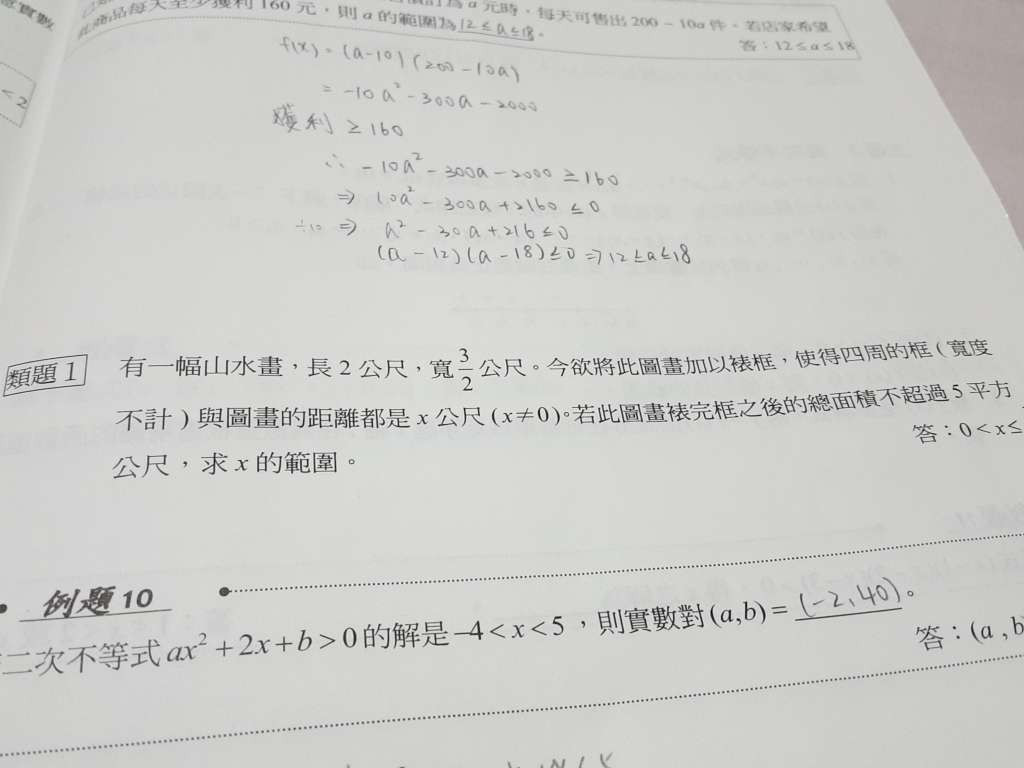 意實數
價訂為 a 元時,每天可售出 200 − 10a 件。若店家希望
此商品每天至少獲利 160 元,則 a 的範圍為 12 ≤ a ≤ 18。
答:12 ≤ a ≤ 18
< 2
f(x) = (a-10)(200-10a)
= -10a² - 300a - 2000
獲利 ≥ 160
∴ -10a² - 300a - 2000 ≥ 160
⇒ 10a² - 300a + 2160 ≤ 0
÷10 ⇒ a² - 30a + 216 ≤ 0
(a - 12)(a - 18) ≤ 0 ⇒ 12 ≤ a ≤ 18
類題 1 有一幅山水畫,長 2 公尺,寬 3/2 公尺。今欲將此圖畫加以裱框,使得四周的框(寬度
不計)與圖畫的距離都是 x 公尺 (x≠0)。若此圖畫裱完框之後的總面積不超過 5 平方
公尺,求 x 的範圍。
答:0 < x ≤
例題 10
二次不等式 ax² + 2x + b > 0 的解是 −4 < x < 5,則實數對 (a,b) = (-2,40)。
答:(a , b